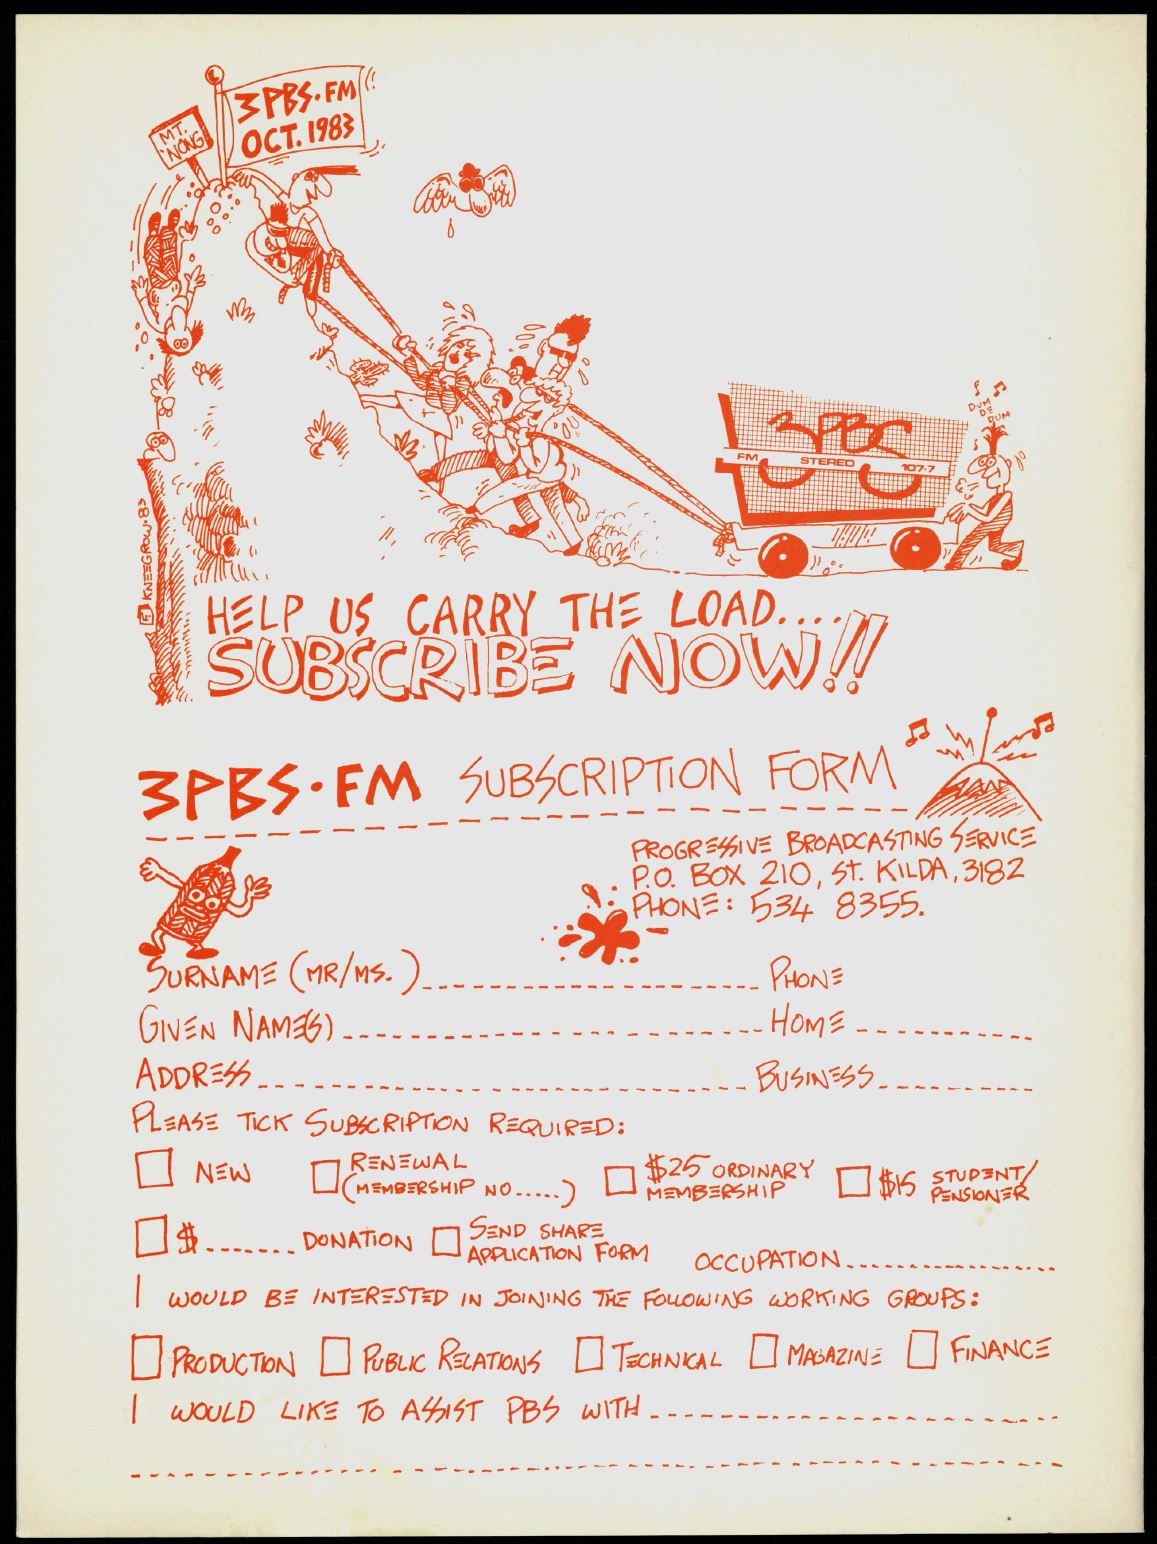 3PBS·FM
OCT. 1983
MT.
'NONG
DUM
DE
DUM
3PBS
FM STEREO 107·7
KNEEGROW·83
HELP US CARRY THE LOAD....
SUBSCRIBE NOW!!
3PBS·FM SUBSCRIPTION FORM
PROGRESSIVE BROADCASTING SERVICE
P.O. BOX 210, ST. KILDA, 3182
PHONE: 534 8355.
SURNAME (MR/MS. ) PHONE
GIVEN NAME(S) HOME
ADDRESS BUSINESS
PLEASE TICK SUBSCRIPTION REQUIRED:
NEW RENEWAL (MEMBERSHIP NO.....) $25 ORDINARY MEMBERSHIP $15 STUDENT/PENSIONER
$....... DONATION SEND SHARE APPLICATION FORM OCCUPATION
I WOULD BE INTERESTED IN JOINING THE FOLLOWING WORKING GROUPS:
PRODUCTION PUBLIC RELATIONS TECHNICAL MAGAZINE FINANCE
I WOULD LIKE TO ASSIST PBS WITH